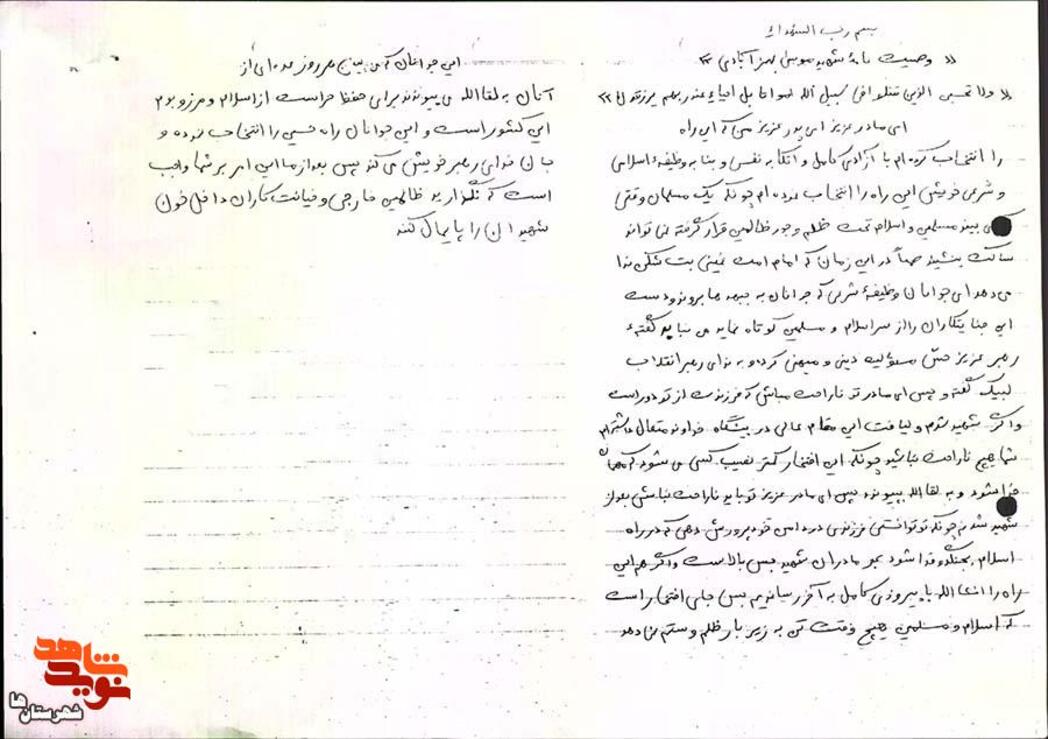 بسم رب الشهداء
« وصیت نامهٔ شهید موسی بهزآبادی »
« ولا تحسبن الذین قتلوا فی سبیل الله امواتا بل احیاء عند ربهم یرزقون »
ای مادر عزیز ای پدر عزیز من که این راه
را انتخاب کرده ام با آزادی کامل و اتکا به نفس و بنا به وظیفهٔ اسلامی
و شرعی خویش این راه را انتخاب نموده ام چونکه یک مسلمان وقتی
می بیند مسلمین و اسلام تحت ظلم و جور ظالمین قرار گرفته نمی تواند
ساکت بنشیند حتماً در این زمان که امام امت خمینی بت شکن ندا
می دهد ای جوانان وظیفهٔ شرعی که جوانان به جبهه ها بروند و دست
این جنایتکاران را از سر اسلام و مسلمین کوتاه نماید من بنا به گفتهٔ
رهبر عزیز حس مسؤلیت دینی و میهنی کرده و به ندای رهبر انقلاب
لبیک گفته و پس ای مادر تو ناراحت مباش که فرزندت از تو دور است
و اگر شهید شدم و لیاقت این مقام عالی در پیشگاه خداوند متعال داشتم
شما هیچ ناراحت نباشید چونکه این افتخار کمتر نصیب کسی می شود که مهمان
خدا شود و به لقاالله بپیوندد پس ای مادر عزیز تو باید ناراحت نباشی بعد از
شهید شدنم چونکه تو توانستی فرزندی در دامن خود پرورش دهی که در راه
اسلام بجنگد و فدا شود اجر مادران شهید بس بالاست و اگر هم این
راه را انشاالله با پیروزی کامل به آخر رسانیدیم بس جای افتخار است
که اسلام و مسلمین هیچ وقت تن به زیر بار ظلم و ستم نمی دهد
این جوانان که هر روز عده ای از
آنان به لقاالله می پیوندند برای حفظ حراست از اسلام و مرز و بوم
این کشور است و این جوانان راه حسین را انتخاب نموده و
جان فدای رهبر خویش می کند پس بعد از ما این امر بر شما واجب
است که نگذارید ظالمین خارجی و خیانت کاران داخل خون
شهیدان را پایمال کنند
نوید شاهد
شهرستان ها